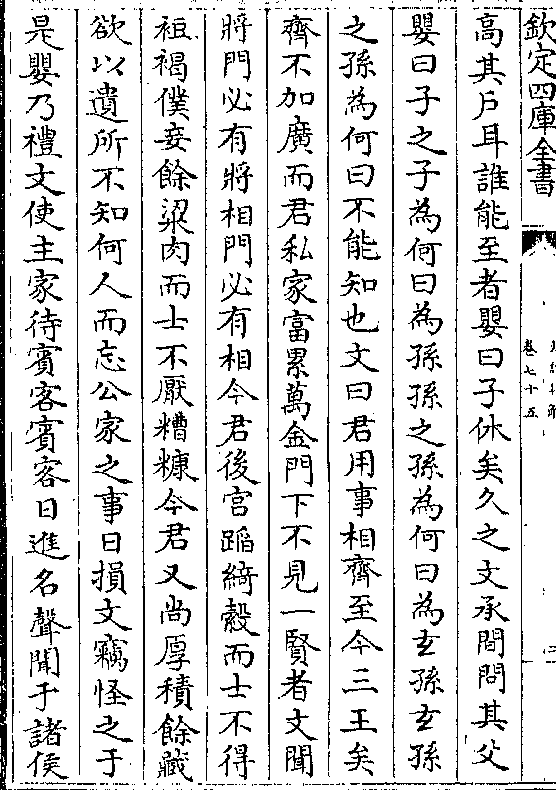 欽定四庫全書
卷七十五
高其戸耳誰能至者嬰曰子休矣久之文承間問其父
嬰曰子之子為何曰為孫孫之孫為何曰為玄孫玄孫
之孫為何曰不能知也文曰君用事相齊至今三王矣
齊不加廣而君私家富累萬金門下不見一賢者文聞
將門必有將相門必有相今君後宮蹈綺縠而士不得
裋褐僕妾餘粱肉而士不厭糟糠今君又尚厚積餘藏
欲以遺所不知何人而忘公家之事日損文竊怪之于
是嬰乃禮文使主家待賓客賓客日進名聲聞于諸侯